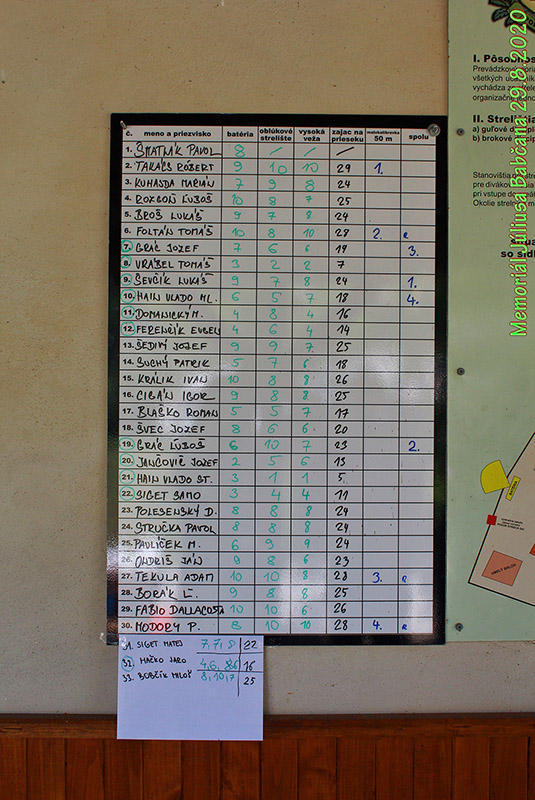 č. meno a priezvisko batéria oblúkové strelište vysoká veža zajac na prieseku malokalibrovka 50 m spolu
1. ŠMATNÁK PAVOL 8 / / /
2. TAKÁCS RÓBERT 9 10 10 29 1.
3. KUHAJDA MARIÁN 7 9 8 24
4. ROZBOŇ ĽUBOŠ 10 8 7 25
5. BROŠ LUKÁŠ 9 7 8 24
6. FOLTÁN TOMÁŠ 10 8 10 28 2. R
7. GRÁC JOZEF 7 6 6 19 3.
8. VRÁBEL TOMÁŠ 3 2 2 7
9. ŠEVČÍK LUKÁŠ 9 7 8 24 1.
10. HAIN VLADO ML. 6 5 7 18 4.
11. DOMANICKÝ M. 4 8 4 16
12. FERENČÍK EUGEN 4 6 4 14
13. ŠEDIVÝ JOZEF 9 9 7 25
14. SUCHÝ PATRIK 5 7 6 18
15. KRÁLIK IVAN 10 8 8 26
16. CIGÁŇ IGOR 9 8 8 25
17. BLAŠKO ROMAN 5 5 7 17
18. ŠVEC JOZEF 8 6 6 20
19. GRÁC ĽUBOŠ 6 10 7 23 2.
20. JANČOVIČ JOZEF 2 5 6 13
21. HAIN VLADO ST. 3 1 1 5
22. SIGET SAMO 3 4 4 11
23. POLESENSKÝ D. 8 8 8 24
24. STRUČKA PAVOL 8 8 8 24
25. PAVLÍČEK M. 6 9 9 24
26. ONDRIŠ JÁN 9 8 6 23
27. TEKULA ADAM 10 10 8 28 3. R
28. BORÁK Ľ. 9 8 8 25
29. FABIO DALLACOSTA 10 10 6 26
30. MODORY P. 8 10 10 28 4. R
31. SIGET MATEJ 7,7,8 22
32. MAČKO JARO 4,6,6 16
33. BOBČÍK MILOŠ 8,10,7 25
I. Pôsobnos
Prevádzkový
všetkých
vychádza
organizačne
II. Streliš
a) guľové
b) brokové
Stanovištia
pre divákov
pri vstupe do
Okolie strelnice
so síd
Memoriál Júliusa Babčana 29.8.2020